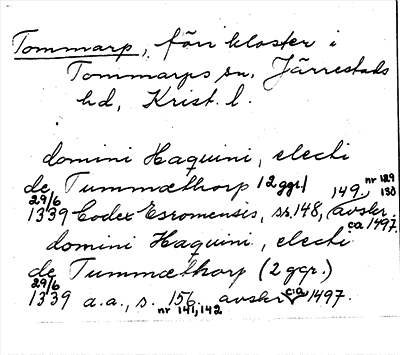 Tommarp, förr kloster i
Tommarps sn, Järrestads
hd, Krist. l.
domini Haquini, electi
de Tummæthorp (2 ggr)
29/6 1339 Codex Esromensis, s. 148, 149, nr 129 130 avskr. ca 1497.
domini Haquini, electi
de Tummæthorp (2 ggr.)
29/6 1339 a.a., s. 156. nr 141, 142 avskr ca 1497.